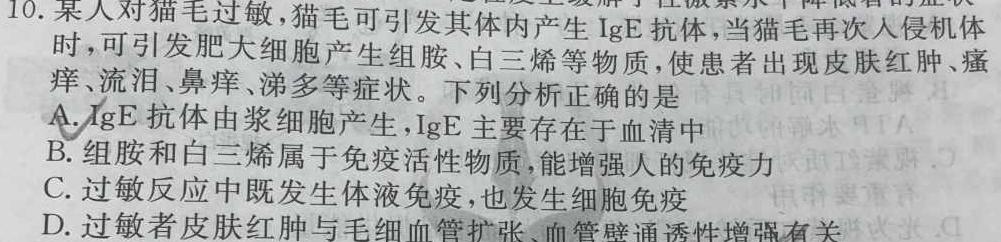 10. 某人对猫毛过敏,猫毛可引发其体内产生 IgE 抗体,当猫毛再次入侵机体
时,可引发肥大细胞产生组胺、白三烯等物质,使患者出现皮肤红肿、瘙
痒、流泪、鼻痒、涕多等症状。下列分析正确的是
A. IgE 抗体由浆细胞产生,IgE 主要存在于血清中
B. 组胺和白三烯属于免疫活性物质,能增强人的免疫力
C. 过敏反应中既发生体液免疫,也发生细胞免疫
D. 过敏者皮肤红肿与毛细血管扩张、血管壁通透性增强有关